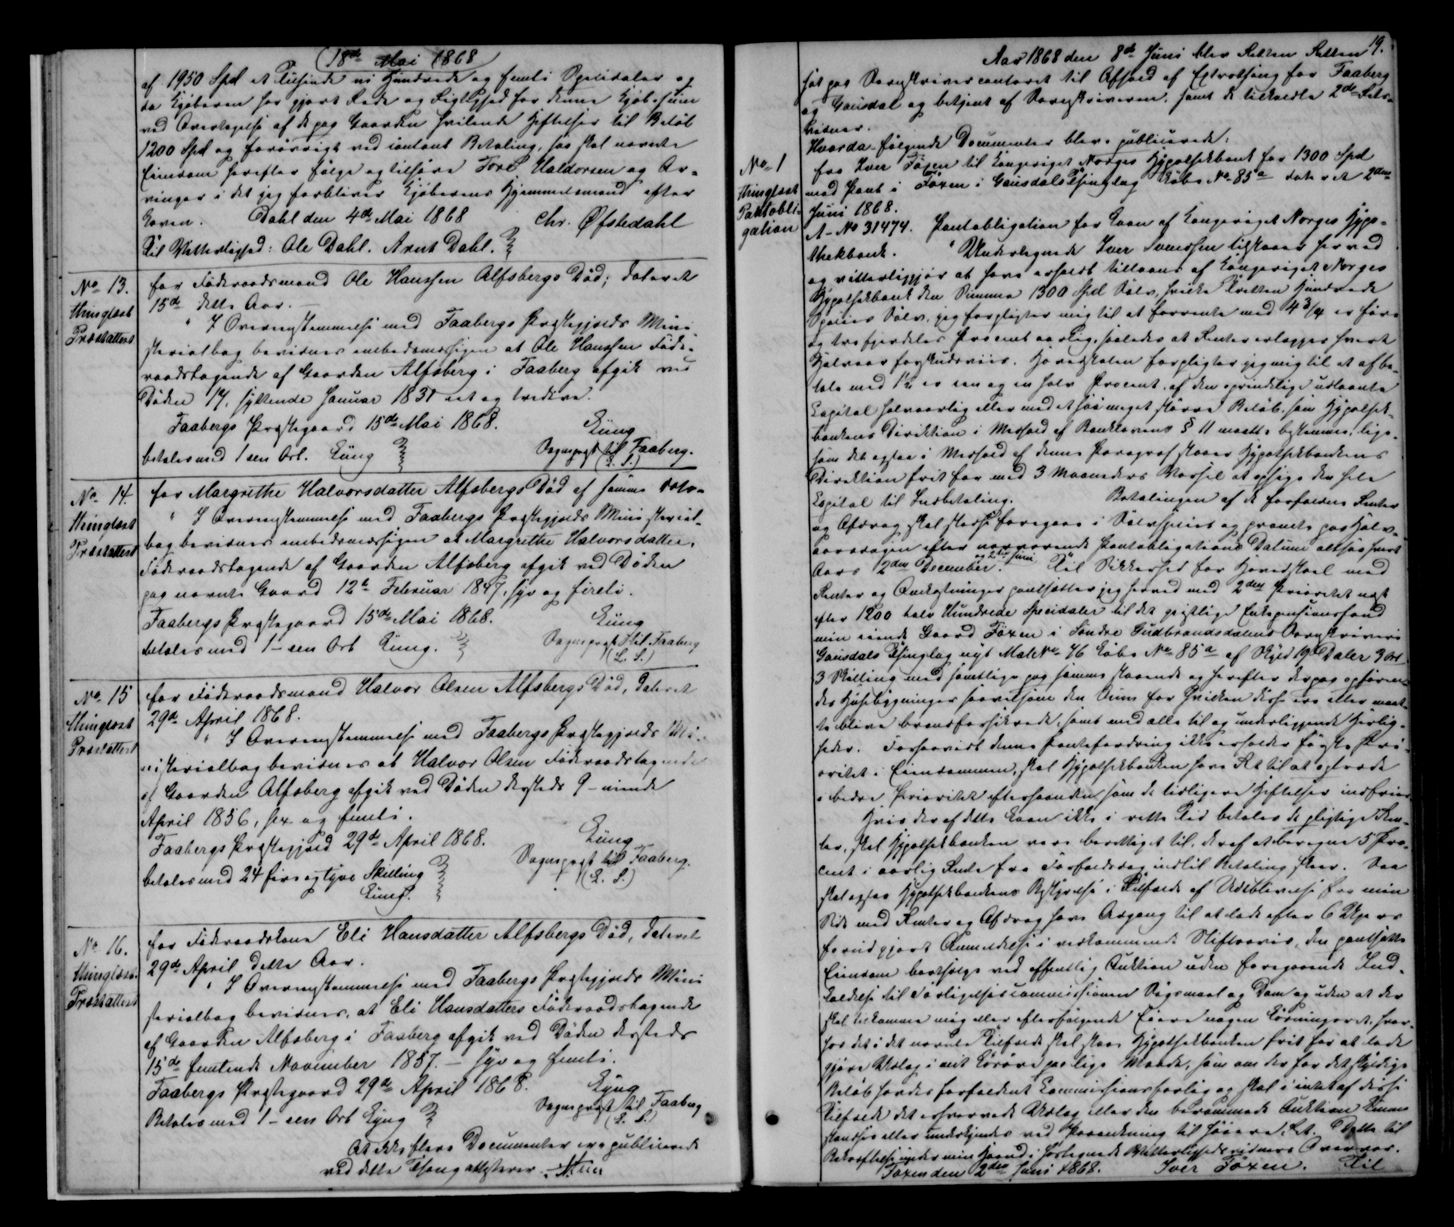 (18de Mai 1868
af 1950 Spd et Tusinde ni Hundrede og femti Speciedaler og
da Kjøberen har gjort Rede og Rigtighed for denne Kjøbesum
ved Overtagelse af de paa Gaarden hvilende Heftelser til Beløb
1200 Spd og forøvrigt ved contant Betaling, saa skal nævnte
Eiendom herefter følge og tilhøre Tore Haldorsen og Ar-
vinger i det jeg forbliver Kjøberens Hjemmelsmand efter
Loven. Dahl den 4de Mai 1868 Chr. Øfstedahl
Til Vitterlighed: Ole Dahl. Arnt Dahl.
No 13.
thinglæst
Præstattest
for Føderaadsmand Ole Hanssen Alfsbergs Død; dateret
15de dette Aar.
I Overensstemmelse med Faabergs Præstegjelds Mini-
sterialbog bevidnes embedsmæssigen at Ole Hanssen Føde-
raadstagende af Gaarden Alfsberg i Faaberg afgik ved
Døden 17, syttende Januar 1831 eet og tredive.
Faabergs Præstegaard 15de Mai 1868.
Lüng
Sognepræst til Faaberg.
betales med 1 een Ort. Lüng (L. S.)
No 14.
thinglæst
Præstattest
for Margrethe Halvorsdatter Alfsbergs Død af samme Dato
I Overensstemmelse med Faabergs Præstegjelds Ministerial-
bog bevidnes embedsmæssigen at Margrethe Halvorsdatter,
Føderaadstagende af Gaarden Alfsberg afgik ved Døden
paa nævnte Gaard 12te Februar 1847, syv og fireti.
Faabergs Præstegaard 15de Mai 1868.
Lüng
Sognepræst til Faaberg
betales med 1 - een Ort Lüng. (L. S.)
No 15
thinglæst
Præstattest
for Føderaadsmand Halvor Olsen Alfsbergs Død, dateret
29de April 1868.
I Overensstemmelse med Faabergs Præstegjelds Mi-
nisterialbog bevidnes at Halvor Olsen Føderaadstagende
af Gaarden Alfsberg afgik ved Døden dersteds 9 - niende
April 1856, sex og femti.
Faabergs Præstegjeld 29de April 1868.
Lüng
Sognepræst til Faaberg.
betales med 24 fire og tyve Skilling (L. S.)
Lüng.
No 16.
thinglæst
Præstattest
for Føderaadskone Eli Hansdatter Alfsbergs Død, dateret
29de April dette Aar.
I Overensstemmelse med Faabergs Præstegjelds Mini
sterialbog bevidnes, at Eli Hansdatters Føderaadstagende
af Gaarden Alfsberg i Faaberg afgik ved Døden dersteds
15de femtende November 1857. - syv og femti.
Faabergs Præstegaard 29de April 1868.
Lüng
Sognepræst til Faaberg
Betales med 1 - een Ort Lüng (L. S.)
At ikke flere Documenter ere publicerede
ved dette Thing attesterer.
19.
Aar 1868 den 8de Juni blev Retten
sat paa Sorenskrivercontoret til Afhold af Extrathing for Faaberg
og Gausdal og betjent af Sorenskriveren, samt de tilkaldte 2de Rets-
vidner.
Hvorda følgende Documenter bleve publicerede:
No 1
thinglæst
Pantobli-
gation
fra Iver Foxen til Kongeriget Norges Hypothekbank for 1300 Spd
med Pant i Foxen i Gausdals Thinglag Løbe No 85a dateret 2den
Juni 1868.
A - No 31474. Pantobligation for Laan af Kongeriget Norges Hypo-
thekbank. Undertegnede Iver Svenssen tilstaaer herved
og vitterliggjør at have erholdt tillaans af Kongeriget Norges
Hypothekbank den Summa 1300 Spd Sølv, hvilke tretten Hundrede
Species Sølv, jeg forpligter mig til at forrente med 4 3/4 er fire
og trefjerdedels Procent aarlig, saaledes at Renten erlægges hvert
Halvaar forskudsviis. Hovedstolen forpligter jeg mig til at afbe-
tale med 1½ er een og en halv Procent af den oprindelige udlaante
Capital halvaarlig eller med et saa meget større Beløb, som Hypothek-
bankens Direktion i Medhold af Banklovens § 11 maatte bestemme, lige-
som det ogsaa i Medhold af denne Paragraf staaer Hypothekbankens
Direktion frit for med 3 Maaneders Varsel at opsige den hele
Capital til Indbetaling. Betalingen af de forfaldne Renter
og Afdrag skal stedse foregaae i Sølvspecies og promte paa Halv-
aarsdagen efter nærværende Pantobligations Datum altsaa hvert
Aars 2den December og 2den Juni. Til Sikkerhed for Hovedstoel med
Renter og Omkostninger pantsætter jeg herved med 2den Prioritet næst
efter 1200 tolv Hundrede Speciedaler til det geistlige Enkepensionsfond
min eiende Gaard Foxen i Søndre Gudbrandsdalens Sorenskriveri
Gausdals Thinglag nyt Mat No 76 Løbe No 85a af Skyld 19 Daler 3 Ort
3 Skilling med samtlige paa samme staaende og herefter derpaa opføren-
des Huusbygninger saavelsom den Sum for hvilken disse ere eller maat-
te blive brandforsikrede, samt med alle til og underliggende Herlig-
heder. Forsaavidt denne Pantefordring ikke erholder første Pri-
oritet i Eiendommen, skal Hypothekbanken have Ret til at optræde
i bedre Prioritet eftersom de tidligere Heftelser indfries
Hvis der af dette Laan ikke i rette Tid betales de pligtige Ren-
ter, skal Hypothekbanken være berettiget til, deraf at beregne 5 Pro-
cent i aarlig Rente fra Forfaldsdag indtil Betaling skeer. Saa
skal ogsaa Hypothekbankens Bestyrelse i Tilfælde af Udeblivelse fra min
Side med Renter og Afdrag have Adgang til at lade efter 6 Ugers
forud gjort Anmeldelse i vedkommende Stiftsavis, den pantsatte
Eiendom bortsælge ved offentlig Auktion uden foregaaende Ind-
kaldelse til Forligelsescommissionen Søgsmaal og Dom og uden at der
skal tilkomme mig eller efterfølgende Eiere nogen Løsningsret, hvor-
hos det i det nævnte Tilfælde skal staae Hypothekbanken frit for at lade
gjøre Udlæg i mit Løsøre paa lige Maade, som om der for det skyldige
Beløb havdes forfaldent Commissionsforlig og skal i intet af disse
Tilfælde det erhvervede Udlæg eller den berammede Auktion kunne
standses eller underkjendes ved Paaankning til høiere Ret. Dette til
Bekræftelse under min Haand i hostegnede Vitterlighedsvidners Overvær.
Foxen den 2den Juni 1868. Iver Foxen. Til